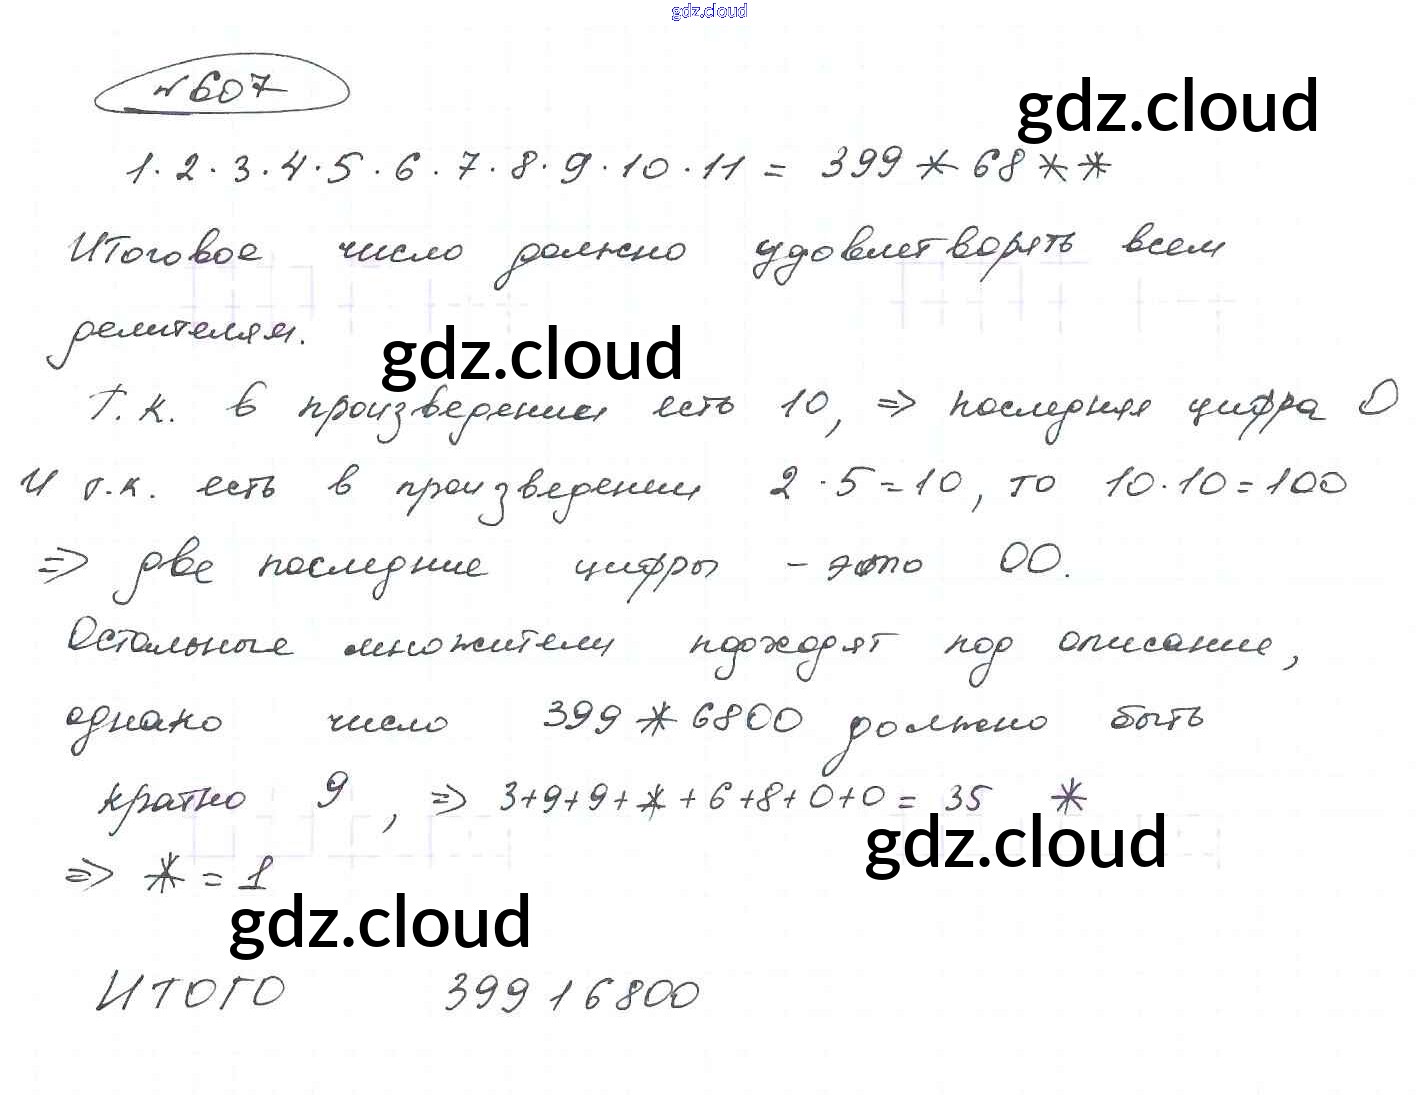 gdz.cloud
№607
gdz.cloud
1·2·3·4·5·6·7·8·9·10·11 = 399*68**
Итоговое число должно удовлетворять всем
делителям.
gdz.cloud
Т.к. в произведении есть 10, => последняя цифра 0
И т.к. есть в произведении 2·5=10, то 10·10=100
=> две последние цифры - это 00.
Остальные множители подходят под описание,
однако число 399*6800 должно быть
кратно 9, => 3+9+9+*+6+8+0+0= 35 *
gdz.cloud
=> * = 1
gdz.cloud
ИТОГО 39916800